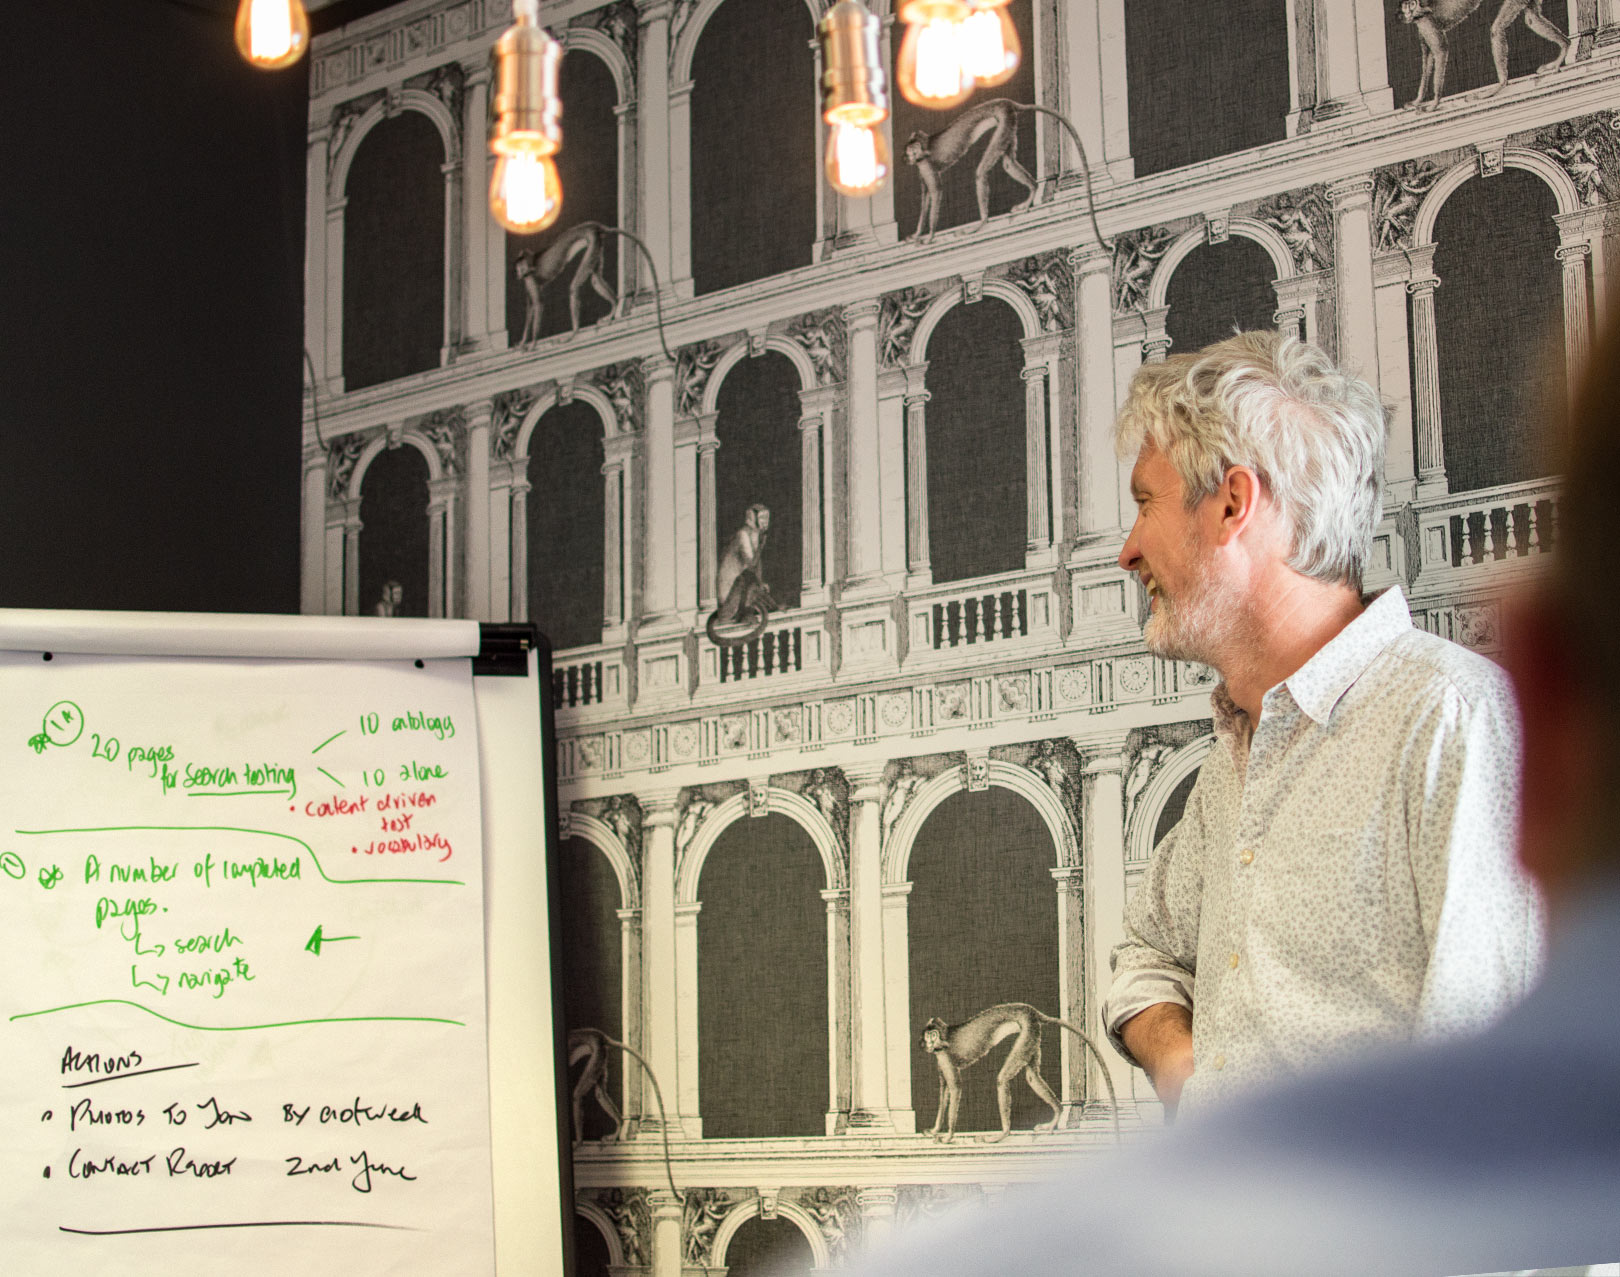 1A
20 pages
for search testing
10 ontology
10 alone
• content driven
test
• vocabulary
A number of completed
pages.
↳ search
↳ navigate
ACTIONS
• PHOTOS TO BY end week
• CONTACT REPORT 2nd June